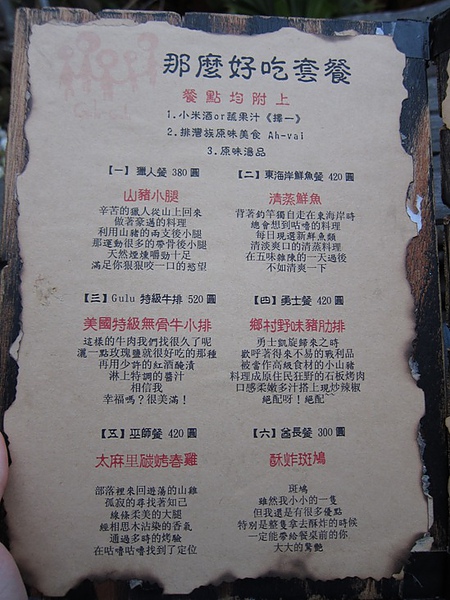 那麼好吃套餐
餐點均附上
1.小米酒or蔬果汁《擇一》
2.排灣族原味美食 Ah-vai
3.原味湯品
【一】獵人餐 380 圓
山豬小腿
辛苦的獵人從山上回來
做著豪邁的料理
利用山豬的兩支後小腿
那運動很多的帶骨後小腿
天然煙燻嚼勁十足
滿足你狠狠咬一口的慾望
【二】東海岸鮮魚餐 420 圓
清蒸鮮魚
背著釣竿獨自走在東海岸時
總會想到咕嚕的料理
每日現選新鮮魚類
清淡爽口的清蒸料理
在五味雜陳的一天過後
不如清爽一下
【三】Gulu 特級牛排 520 圓
美國特級無骨牛小排
這樣的牛肉我們找很久了呢
灑一點玫瑰鹽就很好吃的那種
再用少許的紅酒醃漬
淋上特調的醬汁
相信我
幸福嗎？很美滿！
【四】勇士餐 420 圓
鄉村野味豬肋排
勇士凱旋歸來之時
歡呼著得來不易的戰利品
被當作高級食材的小山豬
料理成原住民狂野的石板烤肉
口感柔嫩多汁搭上現炒辣椒
絕配呀！絕配
【五】巫師餐 420 圓
太麻里碳烤春雞
部落裡來回遊蕩的山雞
孤寂的尋找著知己
線條柔美的大腿
經相思木沾染的香氣
通過多時的烤驗
在咕嚕咕嚕找到了定位
【六】酋長餐 300 圓
酥炸斑鳩
斑鳩
雖然我小小的一隻
但我還是有很多優點
特別是整隻拿去酥炸的時候
一定能帶給餐桌前的你
大大的驚艷